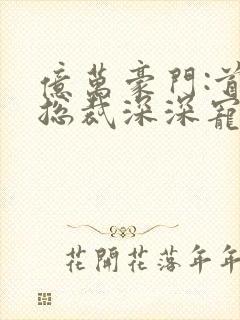 億萬豪門:首
總裁深深寵
花開花落年年